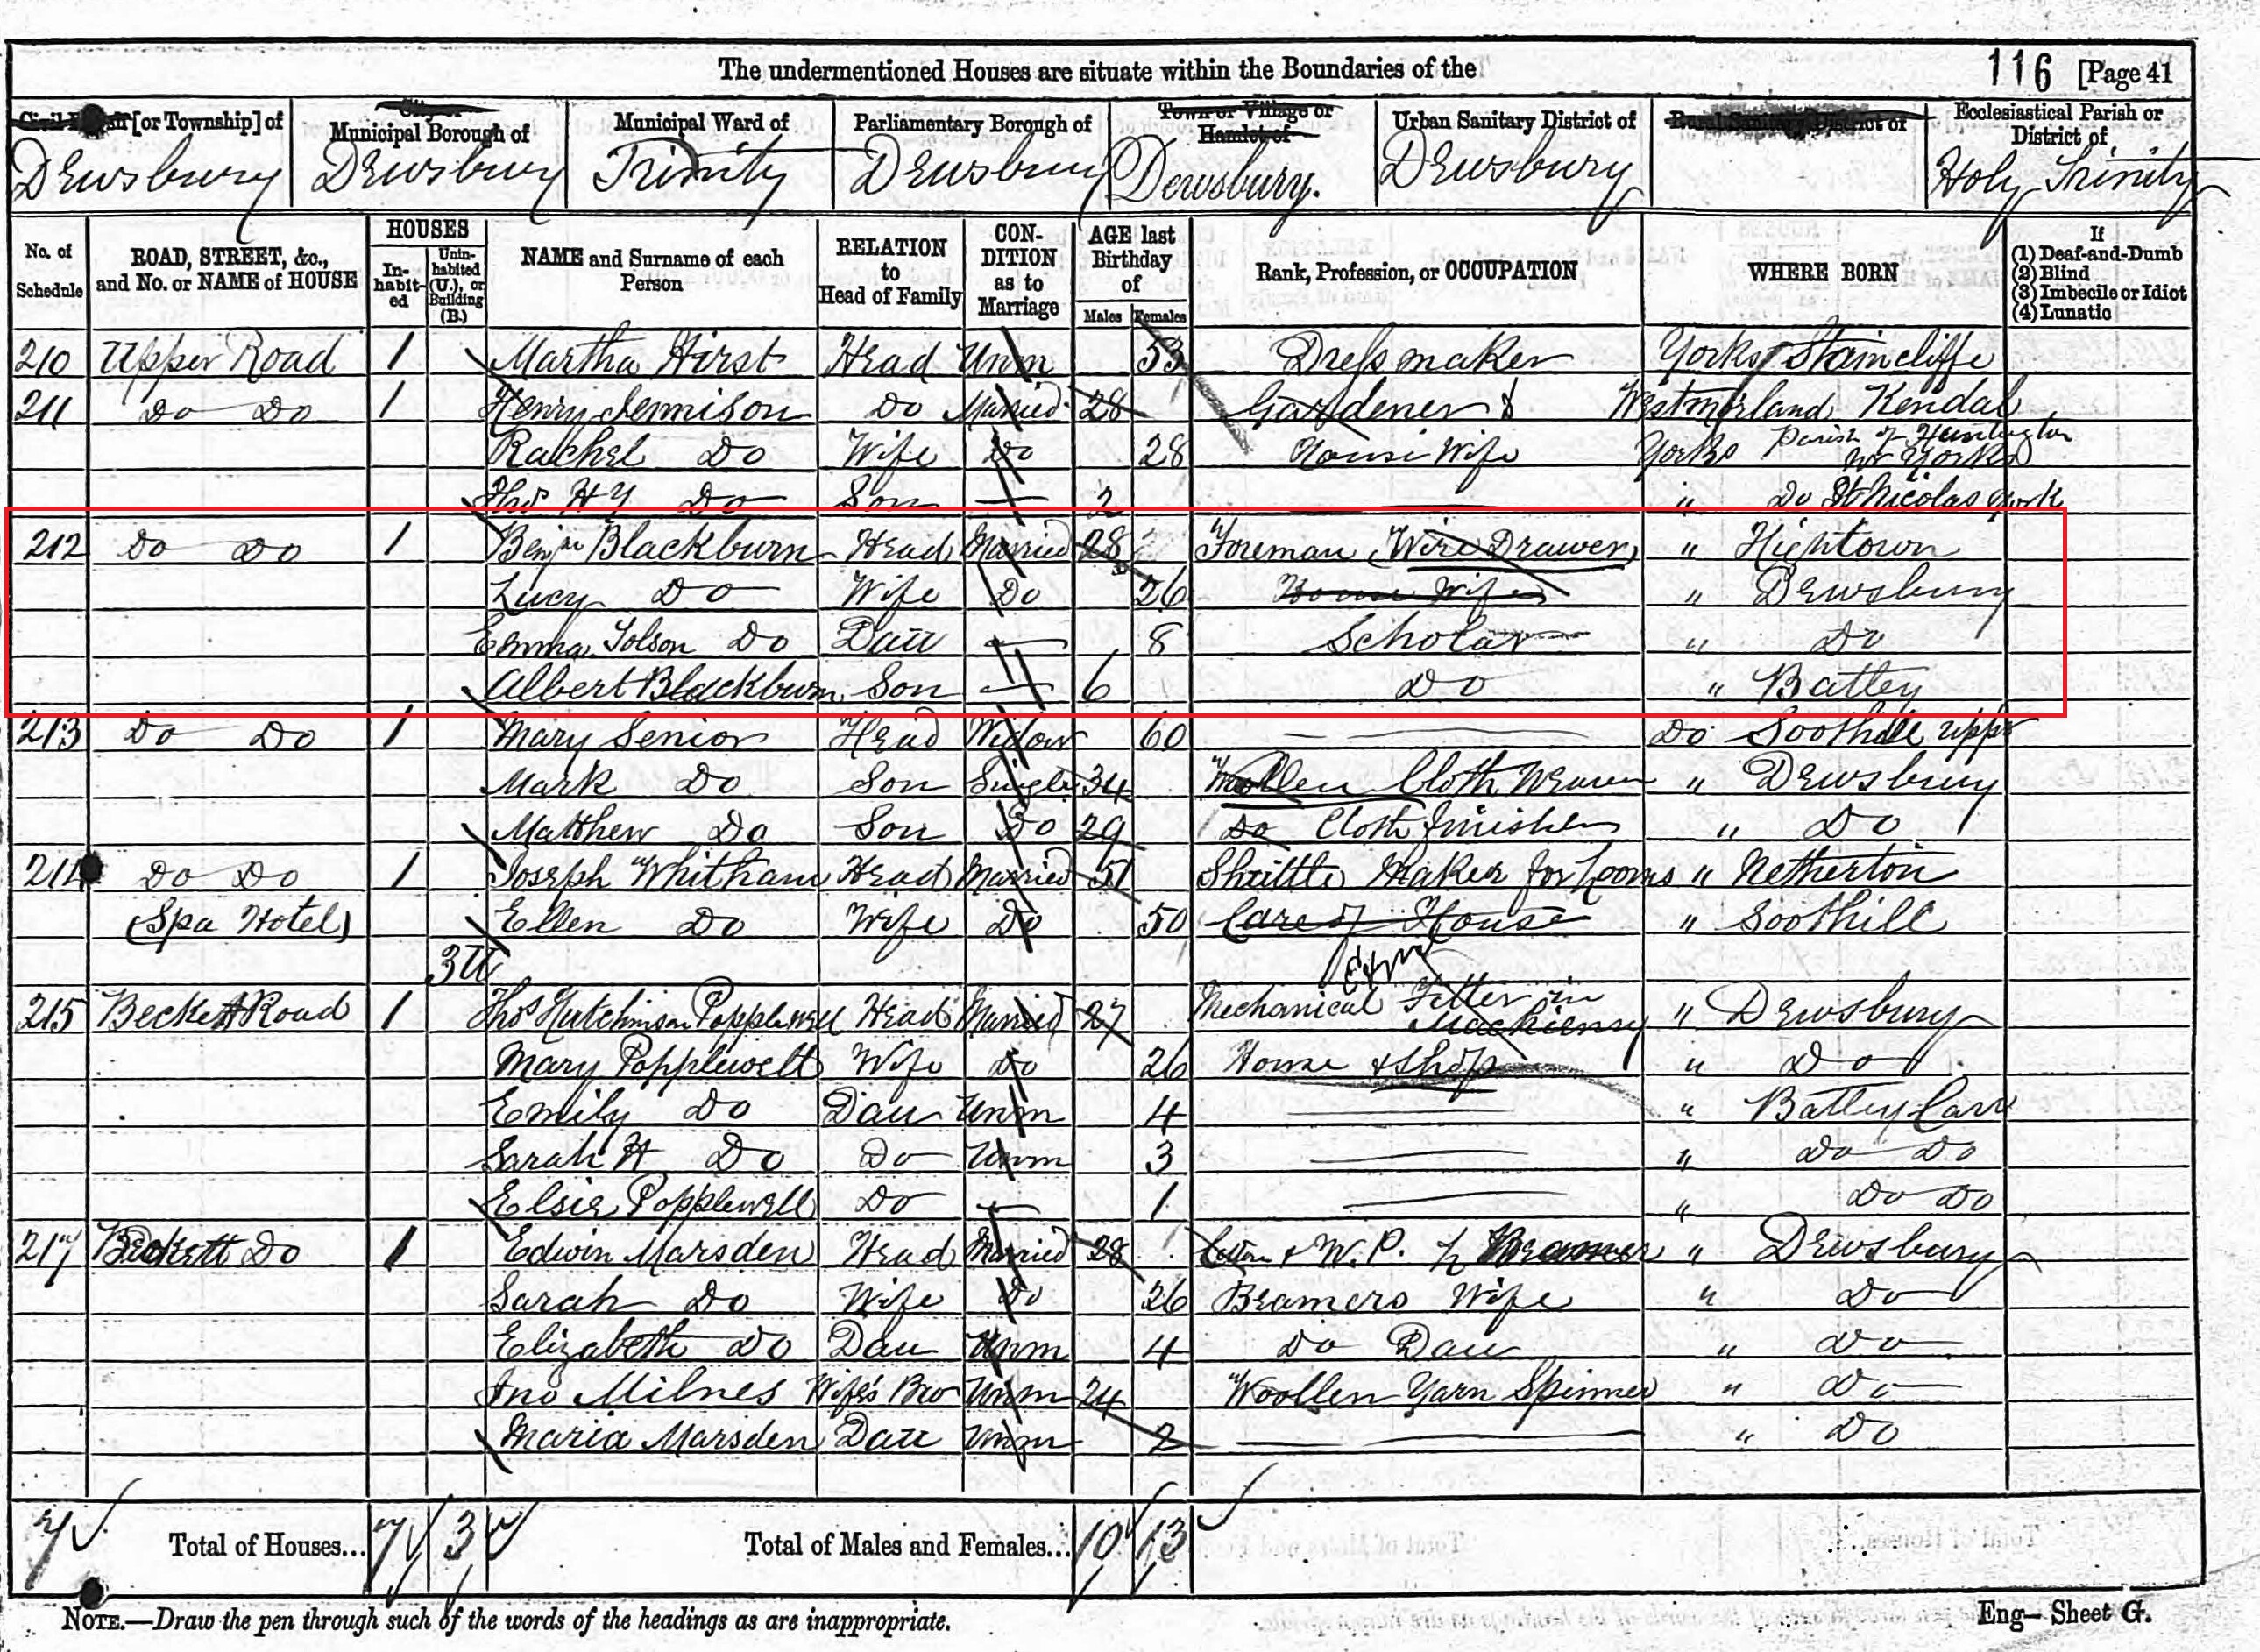 The undermentioned Houses are situate within the Boundaries of the 116 [Page 41
[or Township] of
City or Municipal Borough of
Municipal Ward of
Parliamentary Borough of
Town or Village or Hamlet of
Urban Sanitary District of
Rural Sanitary District of
Ecclesiastical Parish or District of
Dewsbury Dewsbury Trinity Dewsbury Dewsbury. Dewsbury Holy Trinity
No. of Schedule
ROAD, STREET, &c., and No. or NAME of HOUSE
HOUSES
In-habit-ed
Unin-habited (U.), or Building (B.)
NAME and Surname of each Person
RELATION to Head of Family
CON-DITION as to Marriage
AGE last Birthday of
Males Females
Rank, Profession, or OCCUPATION
WHERE BORN
If
(1) Deaf-and-Dumb
(2) Blind
(3) Imbecile or Idiot
(4) Lunatic
210 Upper Road 1 Martha Hirst Head Unm 53 Dressmaker Yorks Staincliffe
211 Do Do 1 Henry Jennison Do Married 28 Gardener Westmorland Kendal
Rachel Do Wife Do 28 House Wife Yorks Parish of Huntington Nr York
Thos Hy Do Son 2 " Do St Nicolas York
212 Do Do 1 Benjn Blackburn Head Married 28 Foreman Wire Drawer " Hightown
Lucy Do Wife Do 26 House Wife " Dewsbury
Emma Tolson Do Dau 8 Scholar " Do
Albert Blackburn Son 6 Do " Batley
213 Do Do 1 Mary Senior Head Widow 60 Do Soothill upper
Mark Do Son Single 34 Woollen Cloth Weaver " Dewsbury
Matthew Do Son Do 29 Do Cloth finisher " Do
214 Do Do 1 Joseph Whitham Head Married 51 Shuttle Maker for Looms " Netherton
(Spa Hotel) Ellen Do Wife Do 50 Care of House " Soothill
3U
215 Beckett Road 1 Thos Hutchinson Popplewell Head Married 27 Mechanical Fitter in Machienry " Dewsbury
Mary Popplewell Wife Do 26 House & Shop " Do
Emily Do Dau Unm 4 " Batley Carr
Sarah H Do Do Unm 3 " Do Do
Elsie Popplewell Do 1 " Do Do
217 Beckett Do 1 Edwin Marsden Head Married 28 Cotton & W. P. Beamer " Dewsbury
Sarah Do Wife Do 26 Beamers Wife " Do
Elizabeth Do Dau Unm 4 Do Dau " Do
Jno Milnes Wife's Bro Unm 24 Woollen Yarn Spinner " Do
Maria Marsden Dau Unm 2 " Do
7 Total of Houses... 7 3 Total of Males and Females... 10 13
NOTE.—Draw the pen through such of the words of the headings as are inappropriate.
Eng— Sheet G.